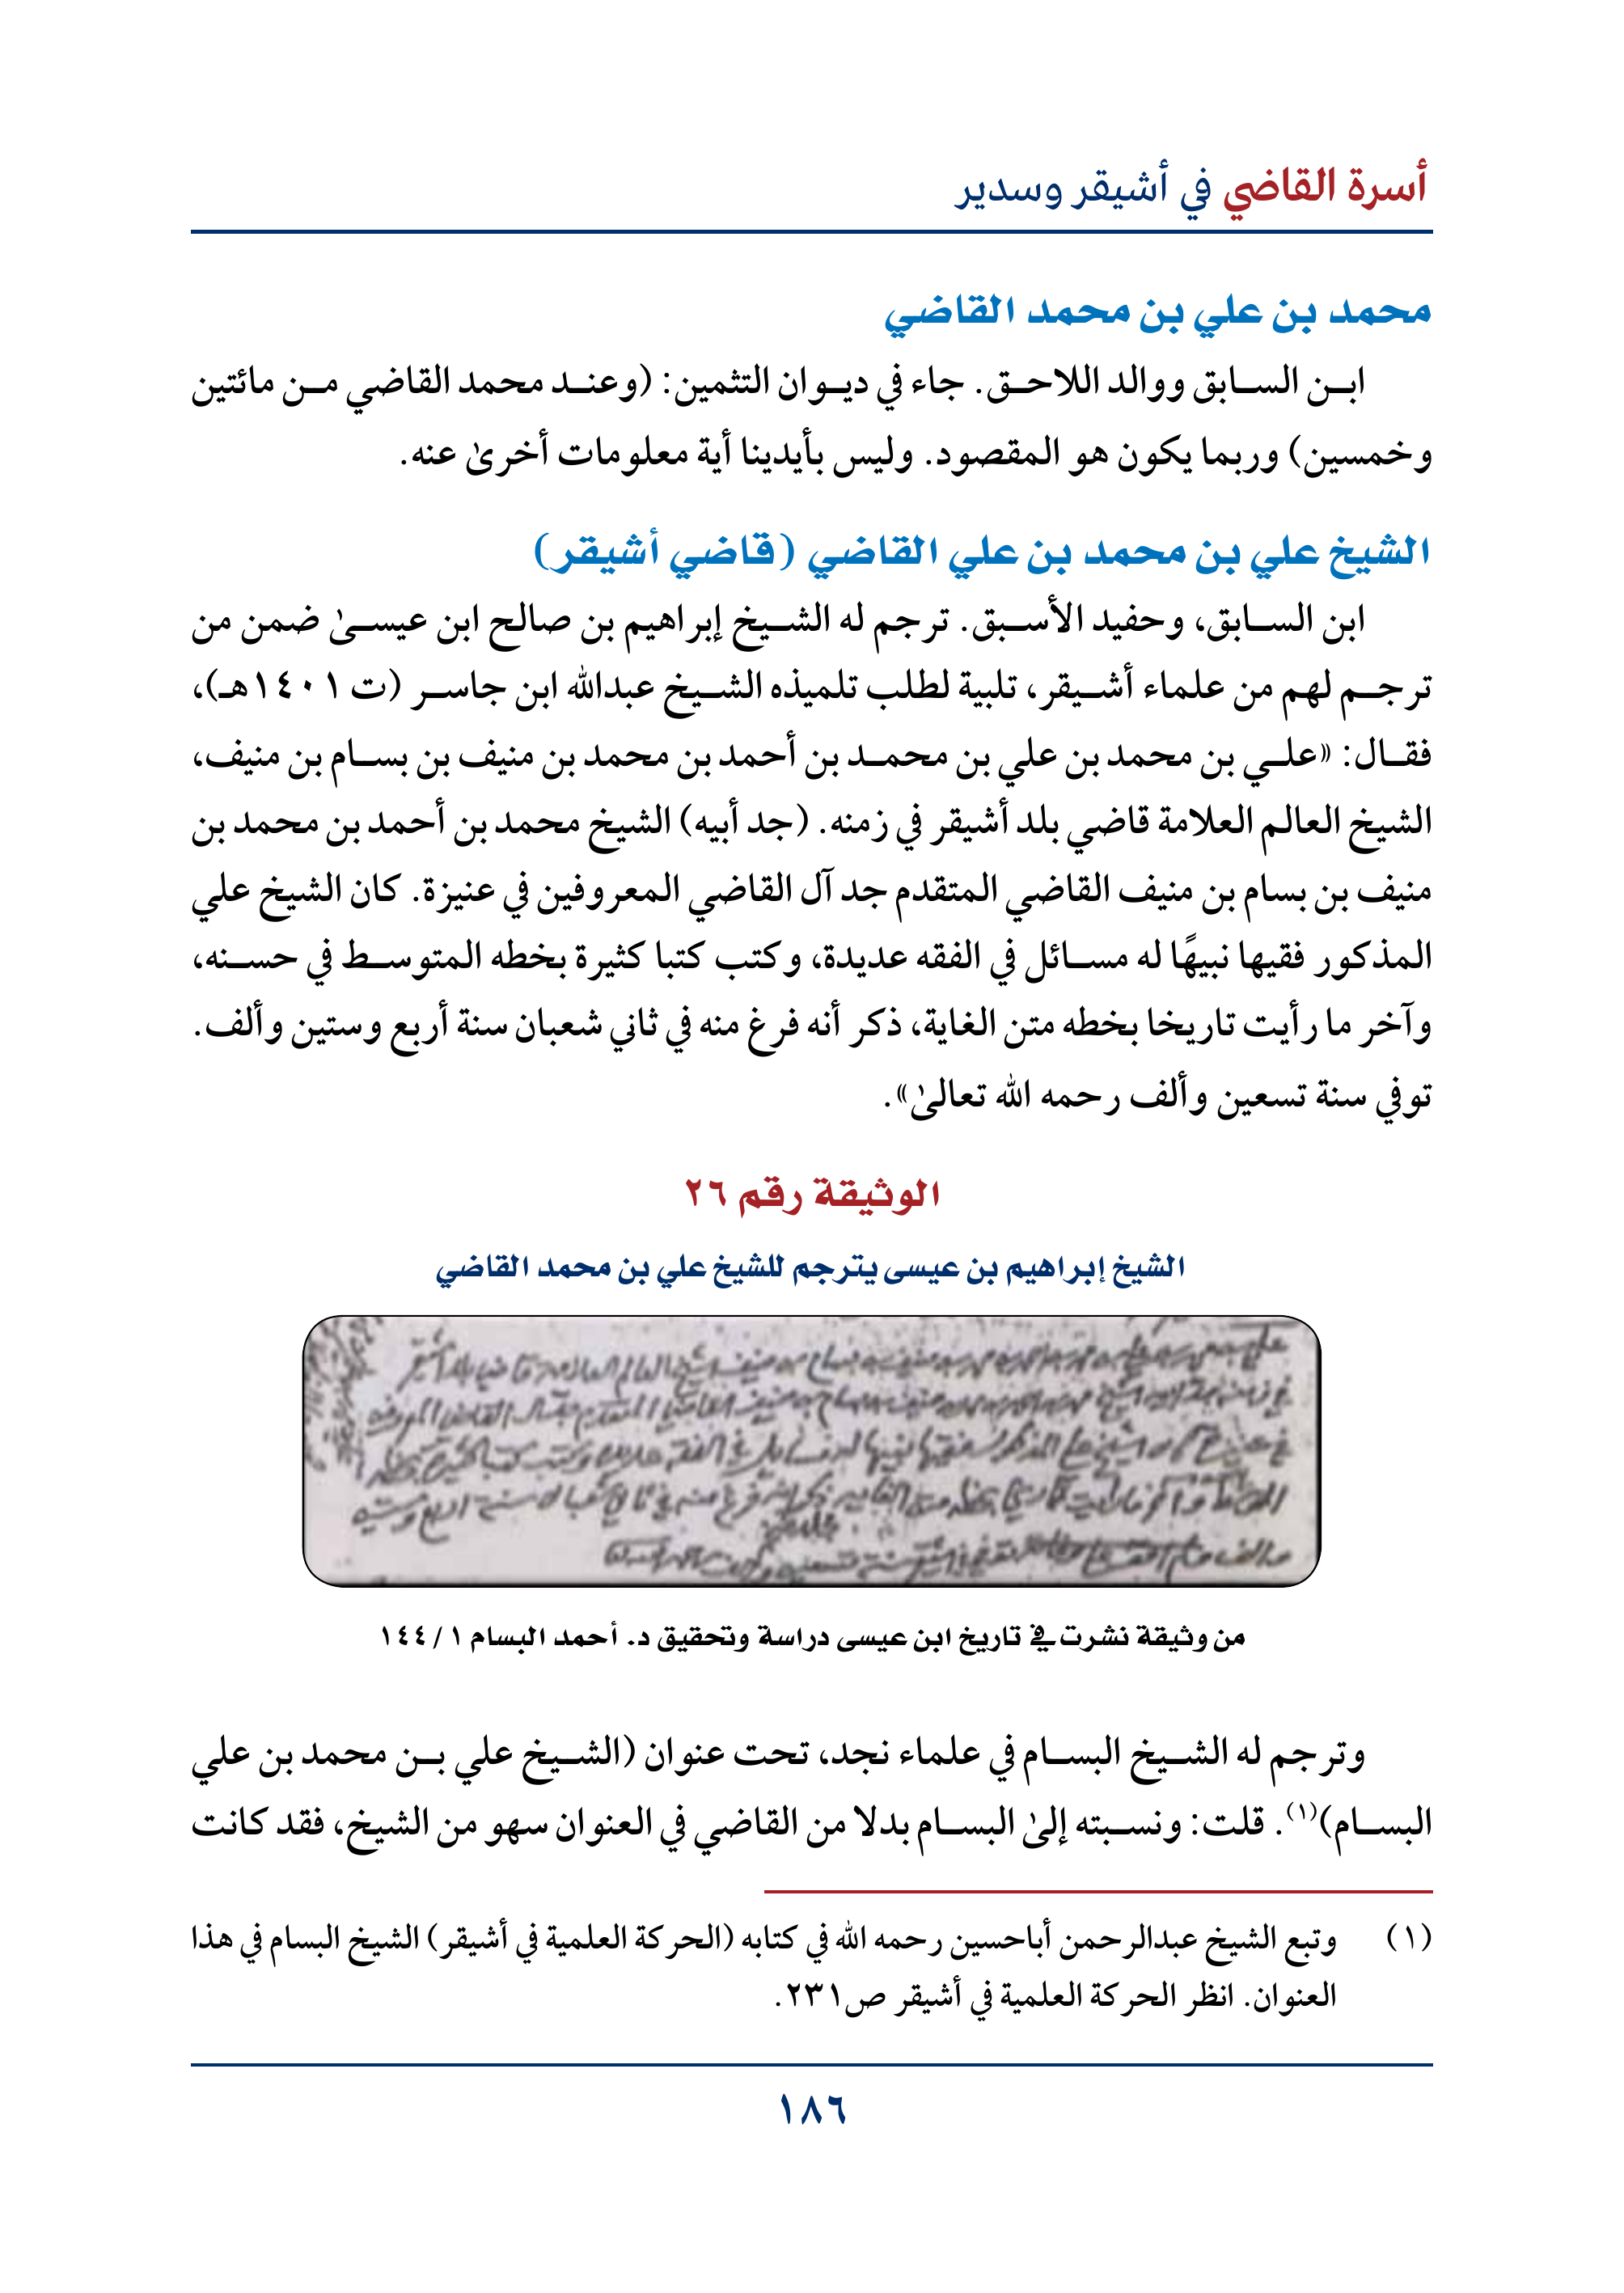 أسرة القاضي في أشيقر وسدير
محمد بن علي بن محمد القاضي
ابن السابق ووالد اللاحق. جاء في ديوان التثمين: (وعند محمد القاضي من مائتين
وخمسين) وربما يكون هو المقصود. وليس بأيدينا أية معلومات أخرىٰ عنه.
الشيخ علي بن محمد بن علي القاضي (قاضي أشيقر)
ابن السابق، وحفيد الأسبق. ترجم له الشيخ إبراهيم بن صالح ابن عيسىٰ ضمن من
ترجم لهم من علماء أشيقر، تلبية لطلب تلميذه الشيخ عبدالله ابن جاسر (ت ١٤٠١هـ)،
فقال: «علي بن محمد بن علي بن محمد بن أحمد بن محمد بن منيف بن بسام بن منيف،
الشيخ العالم العلامة قاضي بلد أشيقر في زمنه. (جد أبيه) الشيخ محمد بن أحمد بن محمد بن
منيف بن بسام بن منيف القاضي المتقدم جد آل القاضي المعروفين في عنيزة. كان الشيخ علي
المذكور فقيها نبيهًا له مسائل في الفقه عديدة، وكتب كتبا كثيرة بخطه المتوسط في حسنه،
وآخر ما رأيت تاريخا بخطه متن الغاية، ذكر أنه فرغ منه في ثاني شعبان سنة أربع وستين وألف.
توفي سنة تسعين وألف رحمه الله تعالىٰ».
الوثيقة رقم ٢٦
الشيخ إبراهيم بن عيسى يترجم للشيخ علي بن محمد القاضي
من وثيقة نشرت في تاريخ ابن عيسى دراسة وتحقيق د. أحمد البسام ١/ ١٤٤
وترجم له الشيخ البسام في علماء نجد، تحت عنوان (الشيخ علي بن محمد بن علي
البسام)(١). قلت: ونسبته إلىٰ البسام بدلا من القاضي في العنوان سهو من الشيخ، فقد كانت
(١) وتبع الشيخ عبدالرحمن أباحسين رحمه الله في كتابه (الحركة العلمية في أشيقر) الشيخ البسام في هذا
العنوان. انظر الحركة العلمية في أشيقر ص٢٣١.
١٨٦